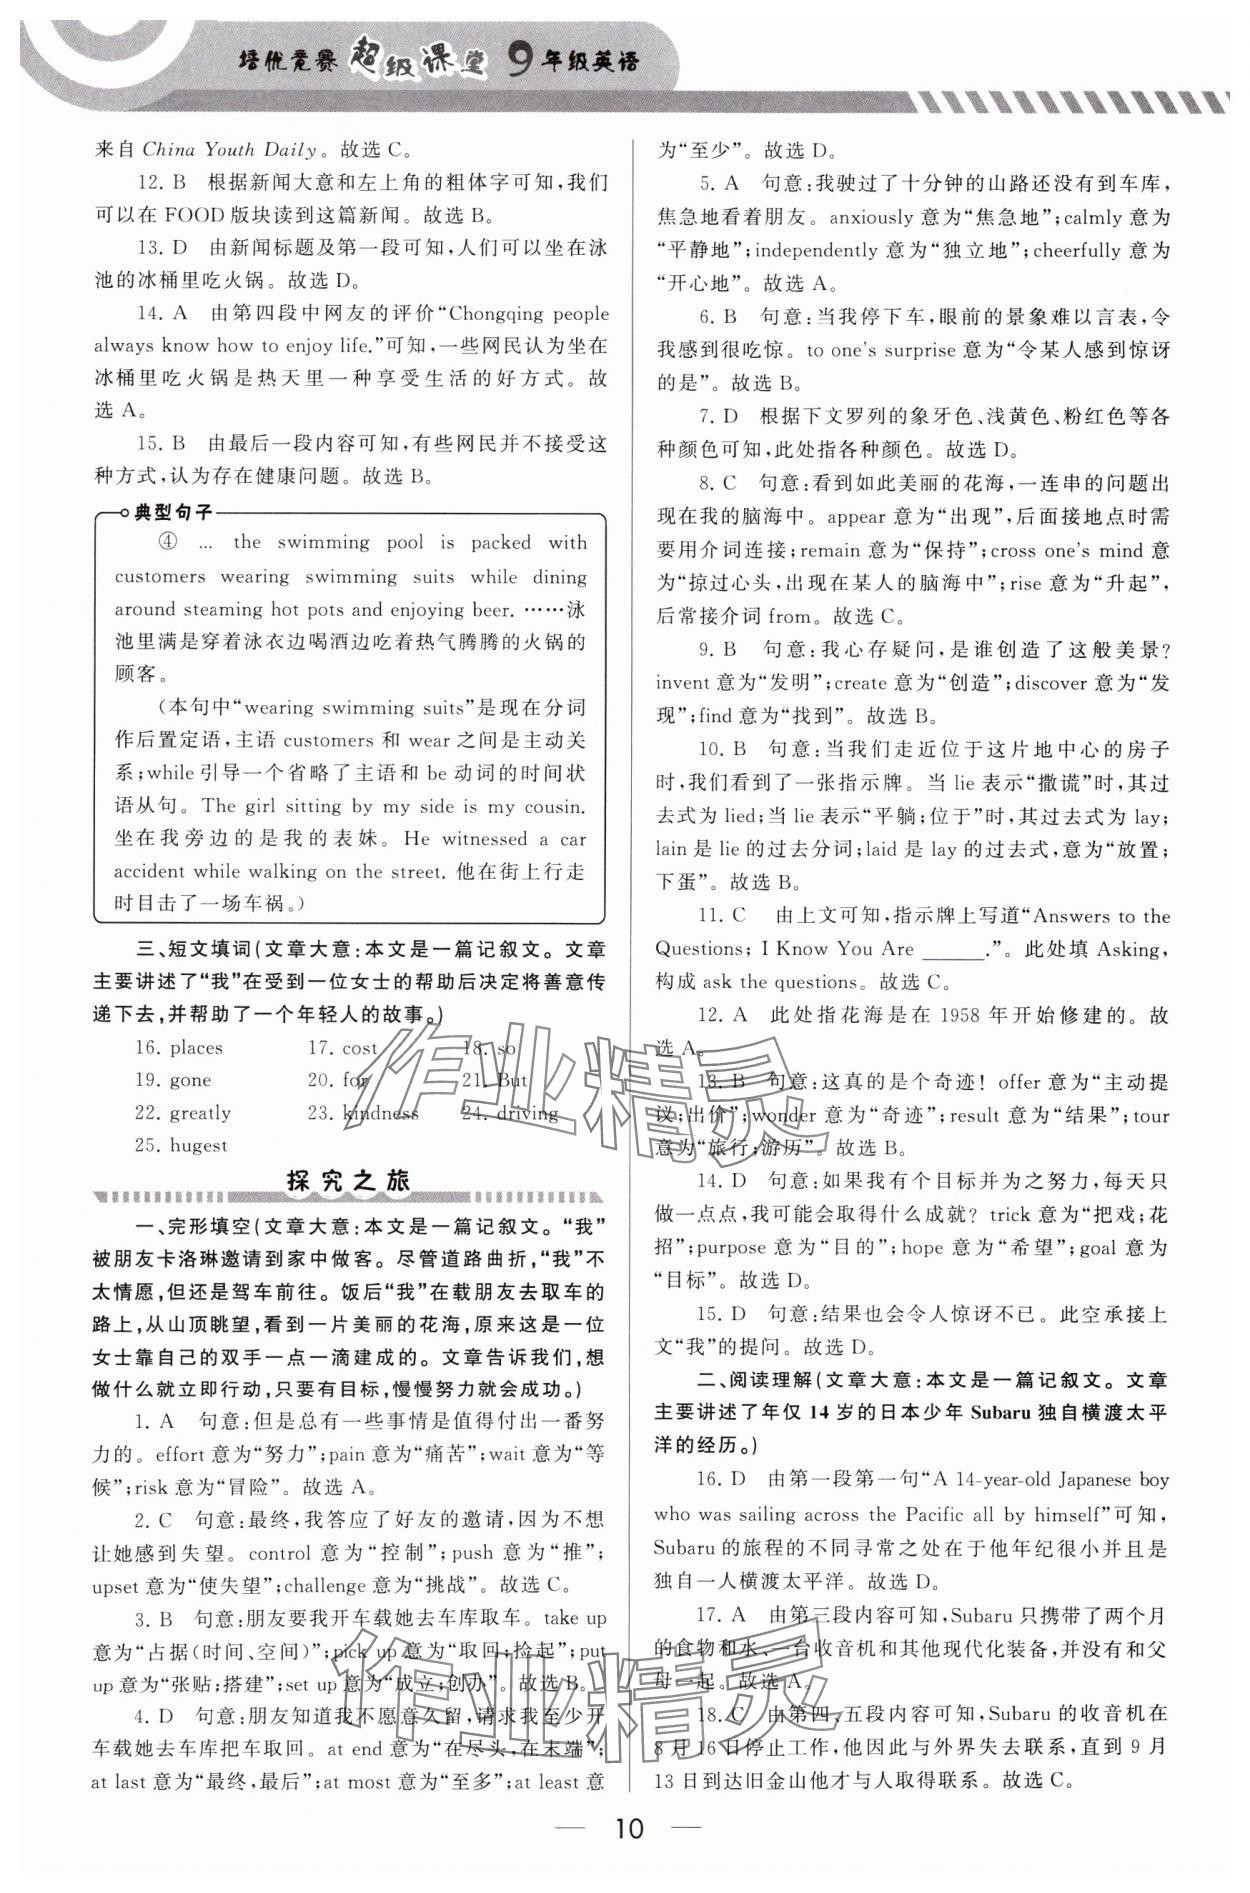 培优竞赛 超级课堂 9年级英语
来自 China Youth Daily。故选 C。
12. B　根据新闻大意和左上角的粗体字可知,我们
可以在 FOOD 版块读到这篇新闻。故选 B。
13. D　由新闻标题及第一段可知,人们可以坐在泳
池的冰桶里吃火锅。故选 D。
14. A　由第四段中网友的评价“Chongqing people
always know how to enjoy life.”可知,一些网民认为坐在
冰桶里吃火锅是热天里一种享受生活的好方式。故
选 A。
15. B　由最后一段内容可知,有些网民并不接受这
种方式,认为存在健康问题。故选 B。
典型句子
④ … the swimming pool is packed with
customers wearing swimming suits while dining
around steaming hot pots and enjoying beer. ……泳
池里满是穿着泳衣边喝酒边吃着热气腾腾的火锅的
顾客。
(本句中“wearing swimming suits”是现在分词
作后置定语,主语 customers 和 wear 之间是主动关
系;while 引导一个省略了主语和 be 动词的时间状
语从句。The girl sitting by my side is my cousin.
坐在我旁边的是我的表妹。He witnessed a car
accident while walking on the street. 他在街上行走
时目击了一场车祸。)
三、短文填词(文章大意:本文是一篇记叙文。文章
主要讲述了“我”在受到一位女士的帮助后决定将善意传
递下去,并帮助了一个年轻人的故事。)
16. places　17. cost　18. so
19. gone　20. for　21. But
22. greatly　23. kindness　24. driving
25. hugest
探究之旅
一、完形填空(文章大意:本文是一篇记叙文。“我”
被朋友卡洛琳邀请到家中做客。尽管道路曲折,“我”不
太情愿,但还是驾车前往。饭后“我”在载朋友去取车的
路上,从山顶眺望,看到一片美丽的花海,原来这是一位
女士靠自己的双手一点一滴建成的。文章告诉我们,想
做什么就立即行动,只要有目标,慢慢努力就会成功。)
1. A　句意:但是总有一些事情是值得付出一番努
力的。effort 意为“努力”;pain 意为“痛苦”;wait 意为“等
候”;risk 意为“冒险”。故选 A。
2. C　句意:最终,我答应了好友的邀请,因为不想
让她感到失望。control 意为“控制”;push 意为“推”;
upset 意为“使失望”;challenge 意为“挑战”。故选 C。
3. B　句意:朋友要我开车载她去车库取车。take up
意为“占据(时间、空间)”;pick up 意为“取回;捡起”;put
up 意为“张贴;搭建”;set up 意为“成立;创办”。故选 B。
4. D　句意:朋友知道我不愿意久留,请求我至少开
车载她去车库把车取回。at end 意为“在尽头,在末端”;
at last 意为“最终,最后”;at most 意为“至多”;at least 意
为“至少”。故选 D。
5. A　句意:我驶过了十分钟的山路还没有到车库,
焦急地看着朋友。anxiously 意为“焦急地”;calmly 意为
“平静地”;independently 意为“独立地”;cheerfully 意为
“开心地”。故选 A。
6. B　句意:当我停下车,眼前的景象难以言表,令
我感到很吃惊。to one's surprise 意为“令某人感到惊讶
的是”。故选 B。
7. D　根据下文罗列的象牙色、浅黄色、粉红色等各
种颜色可知,此处指各种颜色。故选 D。
8. C　句意:看到如此美丽的花海,一连串的问题出
现在我的脑海中。appear 意为“出现”,后面接地点时需
要用介词连接;remain 意为“保持”;cross one's mind 意
为“掠过心头,出现在某人的脑海中”;rise 意为“升起”,
后常接介词 from。故选 C。
9. B　句意:我心存疑问,是谁创造了这般美景?
invent 意为“发明”;create 意为“创造”;discover 意为“发
现”;find 意为“找到”。故选 B。
10. B　句意:当我们走近位于这片地中心的房子
时,我们看到了一张指示牌。当 lie 表示“撒谎”时,其过
去式为 lied;当 lie 表示“平躺;位于”时,其过去式为 lay;
lain 是 lie 的过去分词;laid 是 lay 的过去式,意为“放置;
下蛋”。故选 B。
11. C　由上文可知,指示牌上写道“Answers to the
Questions; I Know You Are ______.”。此处填 Asking,
构成 ask the questions。故选 C。
12. A　此处指花海是在 1958 年开始修建的。故
选 A。
13. B　句意:这真的是个奇迹! offer 意为“主动提
议;出价”;wonder 意为“奇迹”;result 意为“结果”;tour
意为“旅行;游历”。故选 B。
14. D　句意:如果我有个目标并为之努力,每天只
做一点点,我可能会取得什么成就? trick 意为“把戏;花
招”;purpose 意为“目的”;hope 意为“希望”;goal 意为
“目标”。故选 D。
15. D　句意:结果也会令人惊讶不已。此空承接上
文“我”的提问。故选 D。
二、阅读理解(文章大意:本文是一篇记叙文。文章
主要讲述了年仅 14 岁的日本少年 Subaru 独自横渡太平
洋的经历。)
16. D　由第一段第一句“A 14-year-old Japanese boy
who was sailing across the Pacific all by himself”可知,
Subaru 的旅程的不同寻常之处在于他年纪很小并且是
独自一人横渡太平洋。故选 D。
17. A　由第三段内容可知,Subaru 只携带了两个月
的食物和水、一台收音机和其他现代化装备,并没有和父
母一起。故选 A。
18. C　由第四、五段内容可知,Subaru 的收音机在
8 月 16 日停止工作,他因此与外界失去联系,直到 9 月
13 日到达旧金山他才与人取得联系。故选 C。
作业精灵
作业精灵
10